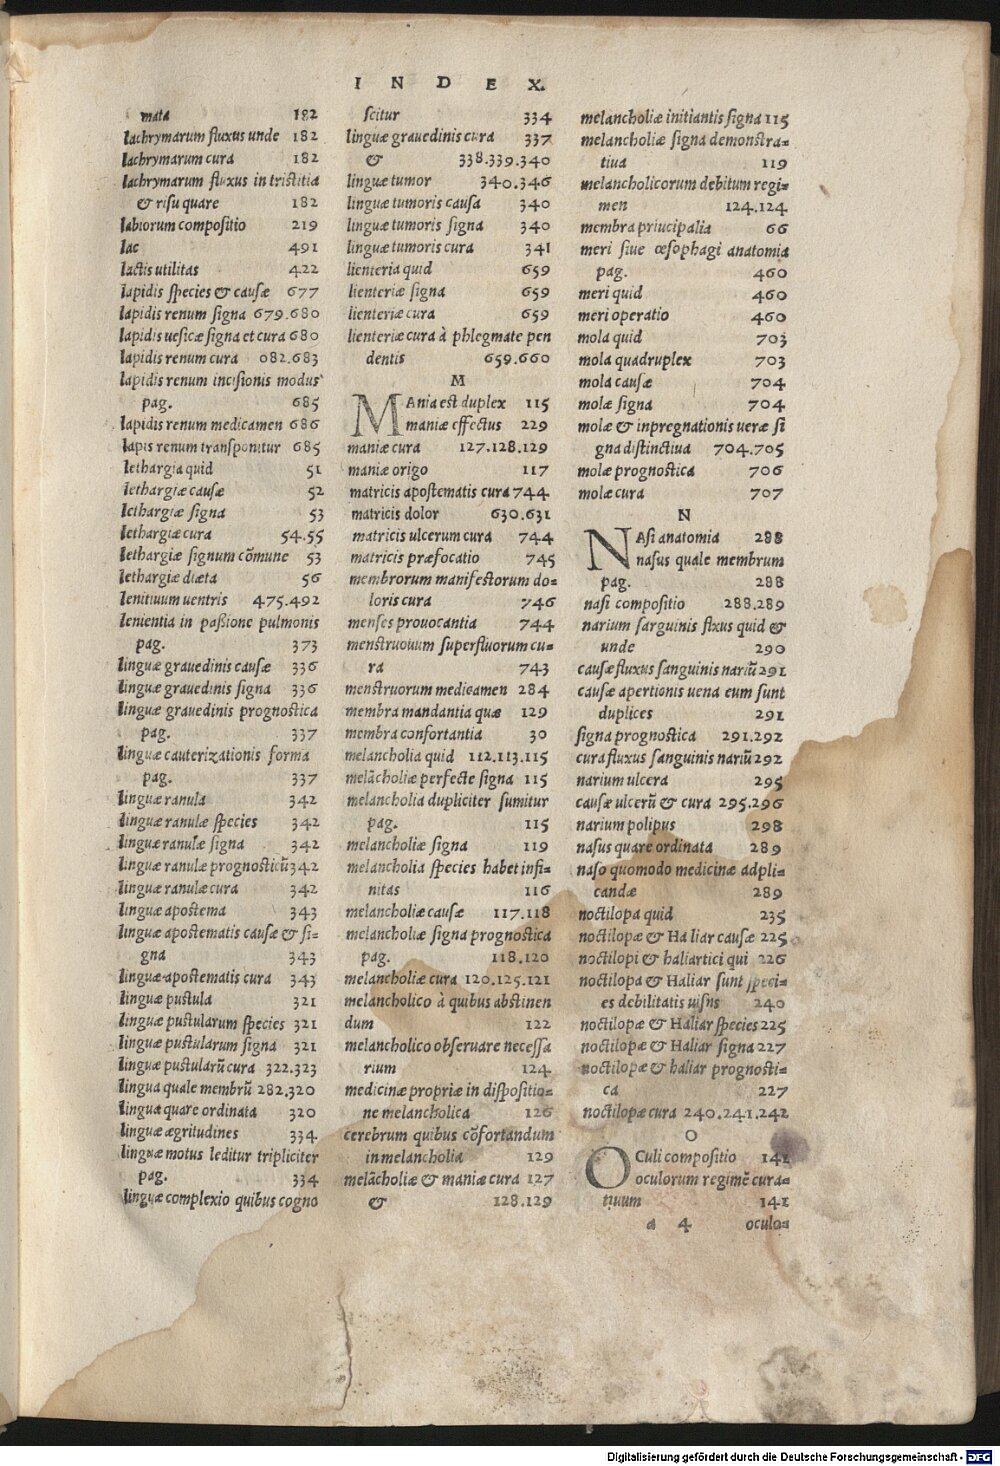 INDEX.
mata 182
lachrymarum fluxus unde 182
lachrymarum cura 182
lachrymarum fluxus in tristitia
& risu quare 182
labiorum compositio 219
lac 491
lactis utilitas 422
lapidis species & causæ 677
lapidis renum signa 679.680
lapidis uesicæ signa et cura 680
lapidis renum cura 082.683
lapidis renum incisionis modus
pag. 685
lapidis renum medicamen 686
lapis renum transponitur 685
lethargia quid 51
lethargiæ causæ 52
lethargiæ signa 53
lethargiæ cura 54.55
lethargiæ signum cõmune 53
lethargiæ diæta 56
lenitiuum uentris 475.492
lenientia in paßione pulmonis
pag. 373
linguæ grauedinis causæ 336
linguæ grauedinis signa 336
linguæ grauedinis prognostica
pag. 337
linguæ cauterizationis forma
pag. 337
linguæ ranula 342
linguæ ranulæ species 342
linguæ ranulæ signa 342
linguæ ranulæ prognosticũ 342
linguæ ranulæ cura 342
linguæ apostema 343
linguæ apostematis causæ & si-
gna 343
linguæ apostematis cura 343
linguæ pustula 321
linguæ pustularum species 321
linguæ pustularum signa 321
linguæ pustularũ cura 322.323
lingua quale membrũ 282.320
lingua quare ordinata 320
linguæ ægritudines 334.
linguæ motus leditur tripliciter
pag. 334
linguæ complexio quibus cogno
scitur 334
linguæ grauedinis cura 337
& 338.339.340
linguæ tumor 340.346
linguæ tumoris causa 340
linguæ tumoris signa 340
linguæ tumoris cura 341
lienteria quid 659
lienteriæ signa 659
lienteriæ cura 659
lienteriæ cura à phlegmate pen
dentis 659.660
M
MAnia est duplex 115
maniæ effectus 229
maniæ cura 127.128.129
maniæ origo 117
matricis apostematis cura 744
matricis dolor 630.631
matricis ulcerum cura 744
matricis præfocatio 745
membrorum manifestorum do-
loris cura 746
menses prouocantia 744
menstruouum superfluorum cu-
ra 743
menstruorum medicamen 284
membra mandantia quæ 129
membra confortantia 30
melancholia quid 112.113.115
melãcholiæ perfecte signa 115
melancholia dupliciter sumitur
pag. 115
melancholiæ signa 119
melancholia species habet infi-
nitas 116
melancholiæ causæ 117.118
melancholiæ signa prognostica
pag. 118.120
melancholiæ cura 120.125.121
melancholico à quibus abstinen
dum 122
melancholico obseruare necessa
rium 124
medicinæ propriæ in dispositio-
ne melancholica 126
cerebrum quibus cõfortandum
in melancholia 129
melãcholiæ & maniæ cura 127
& 128.129
melancholiæ initiantis signa 115
melancholiæ signa demonstra-
tiua 119
melancholicorum debitum regi-
men 124.124
membra priucipalia 66
meri siue œsophagi anatomia
pag. 460
meri quid 460
meri operatio 460
mola quid 703
mola quadruplex 703
mola causæ 704
molæ signa 704
molæ & inpregnationis ueræ si
gna distinctiua 704.705
molæ prognostica 706
molæ cura 707
N
NAsi anatomia 288
nasus quale membrum
pag. 288
nasi compositio 288.289
narium sanguinis flxus quid &
unde 290
causæ fluxus sanguinis nariũ 291
causæ apertionis uena eum sunt
duplices 291
signa prognostica 291.292
cura fluxus sanguinis nariũ 292
narium ulcera 295
causæ ulcerũ & cura 295.296
narium polipus 298
nasus quare ordinata 289
naso quomodo medicinæ adpli-
candæ 289
noctilopa quid 235
noctilopæ & Haliar causæ 225
noctilopi & haliartici qui 226
noctilopa & Haliar sunt speci-
es debilitatis uisns 240
noctilopæ & Haliar species 225
noctilopæ & Haliar signa 227
noctilopæ & haliar prognosti-
ca 227
noctilopæ cura 240.241.242
O
OCuli compositio 141
oculorum regimẽ cura-
tiuum 141
a 4 oculo-
Digitalisierung gefördert durch die Deutsche Forschungsgemeinschaft - DFG